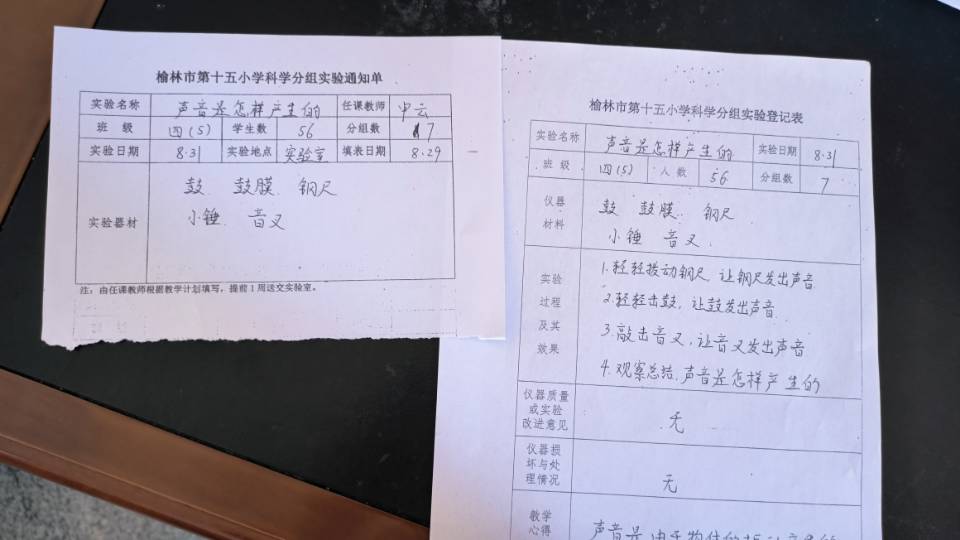 榆林市第十五小学科学分组实验通知单
实验名称 声音是怎样产生的 任课教师 申云
班 级 四(5) 学生数 56 分组数 7
实验日期 8.31 实验地点 实验室 填表日期 8.29
实验器材
鼓 鼓膜 钢尺
小锤 音叉
注：由任课教师根据教学计划填写，提前1周送交实验室。
榆林市第十五小学科学分组实验登记表
实验名称 声音是怎样产生的 实验日期 8.31
班 级 四(5) 人 数 56 分组数 7
仪器
材料
鼓 鼓膜 钢尺
小锤 音叉
实验
过程
及其
效果
1.轻轻拨动钢尺 让钢尺发出声音
2.轻轻击鼓，让鼓发出声音
3.敲击音叉，让音叉发出声音
4.观察总结，声音是怎样产生的
仪器质量
或实验
改进意见
无
仪器损
坏与处
理情况
无
教学
心得
声音是由于物体的振动产生的